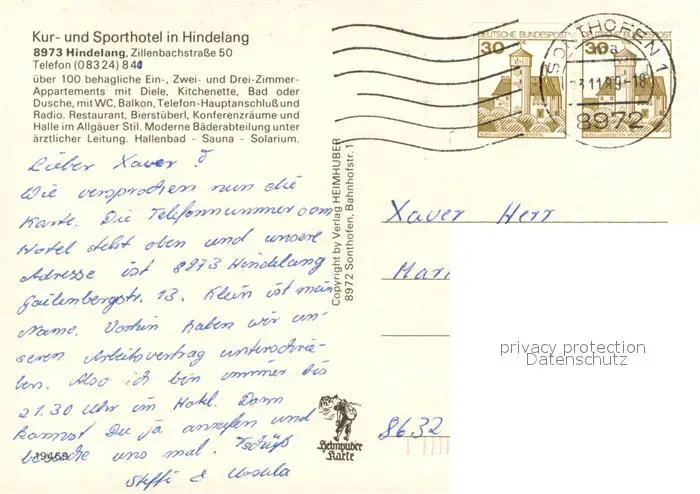 Kur- und Sporthotel in Hindelang
8973 Hindelang, Zillenbachstraße 50
Telefon (08324) 841
über 100 behagliche Ein-, Zwei- und Drei-Zimmer-
Appartements mit Diele, Kitchenette, Bad oder
Dusche, mit WC, Balkon, Telefon-Hauptanschluß und
Radio. Restaurant, Bierstüberl, Konferenzräume und
Halle im Allgäuer Stil. Moderne Bäderabteilung unter
ärztlicher Leitung. Hallenbad - Sauna - Solarium.
Lieber Xaver !
Wie versprochen nun die
Karte. Die Telefonnummer vom
Hotel steht oben und unsere
Adresse ist 8973 Hindelang
Gailenbergstr. 13. Klein ist mein
Name. Vorhin haben wir un-
seren Arbeitsvertrag unterschrie-
ben. Also ich bin immer bis
21.30 Uhr im Hotel. Dann
kannst Du ja anrufen und
besuche uns mal. Tschüß
Steffi & Ursula
19459
Copyright by Verlag HEIMHUBER
8972 Sonthofen, Bahnhofstr. 1
Heimhuber
Karte
DEUTSCHE BUNDESPOST
30
DEUTSCHE BUNDESPOST
30
SONTHOFEN 1
a
-18
8972
Xaver Herr
Mari
8632
privacy protection
Datenschutz